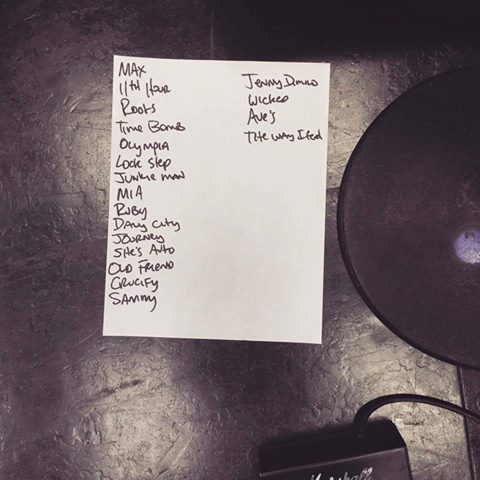 MAX
11th Hour
Roots
Time Bomb
Olympia
Lock Step
Junkie man
MIA
Ruby
Daly City
Journey
She's Auto
Old Friend
Crucify
Sammy
Jenny Demilo
Wicked
Ave's
The way I feel
Marshall